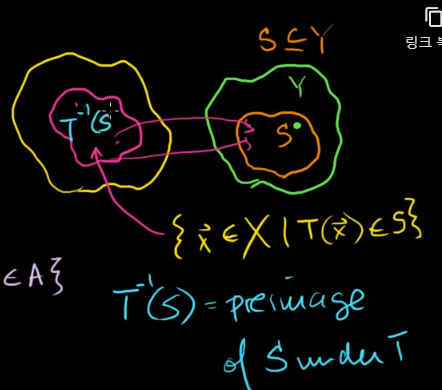 S ⊆ Y
링크
Y
T⁻¹(S
S
{x⃗ ∈ X | T(x⃗) ∈ S}
∈ A}
T⁻¹(S) = preimage
of S under T